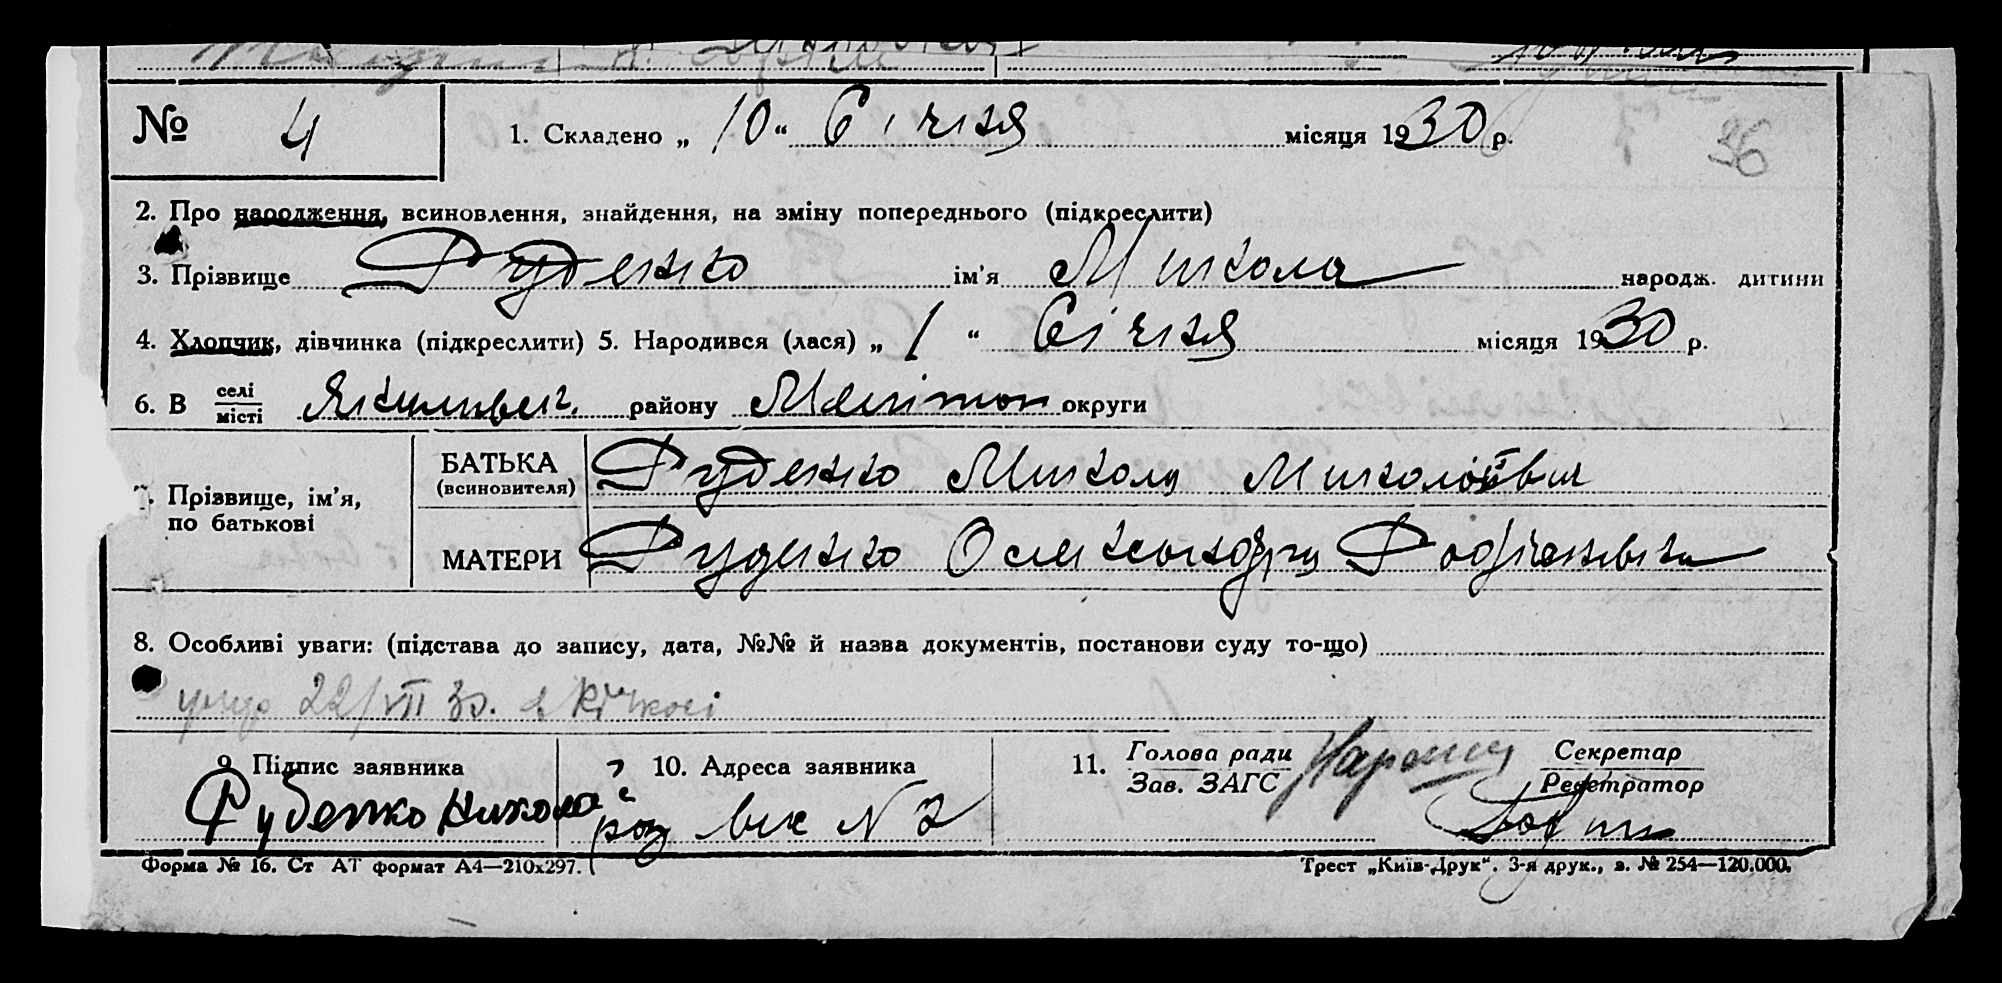 № 4 1. Складено „ 10 “ Січня місяця 1930 р. 36
2. Про народження, всиновлення, знайдення, на зміну попереднього (підкреслити)
3. Прізвище Руденко ім’я Микола народж. дитини
4. Хлопчик, дівчинка (підкреслити) 5. Народився (лася) „ 1 “ Січня місяця 1930 р.
6. В селі
місті району округи
Прізвище, ім’я,
по батькові
БАТЬКА
(всиновителя)
Руденко Микола Миколович
МАТЕРИ
Руденко Олександра
8. Особливі уваги: (підстава до запису, дата, №№ й назва документів, постанови суду то-що)
22/VII 30.
9. Підпис заявника
Руденко Николай
10. Адреса заявника
N 2
11. Голова ради
Зав. ЗАГС
Секретар
Реєстратор
Форма № 16. Ст АТ формат А4—210х297.
Трест „Київ-Друк“. 3-я друк., з. № 254—120.000.